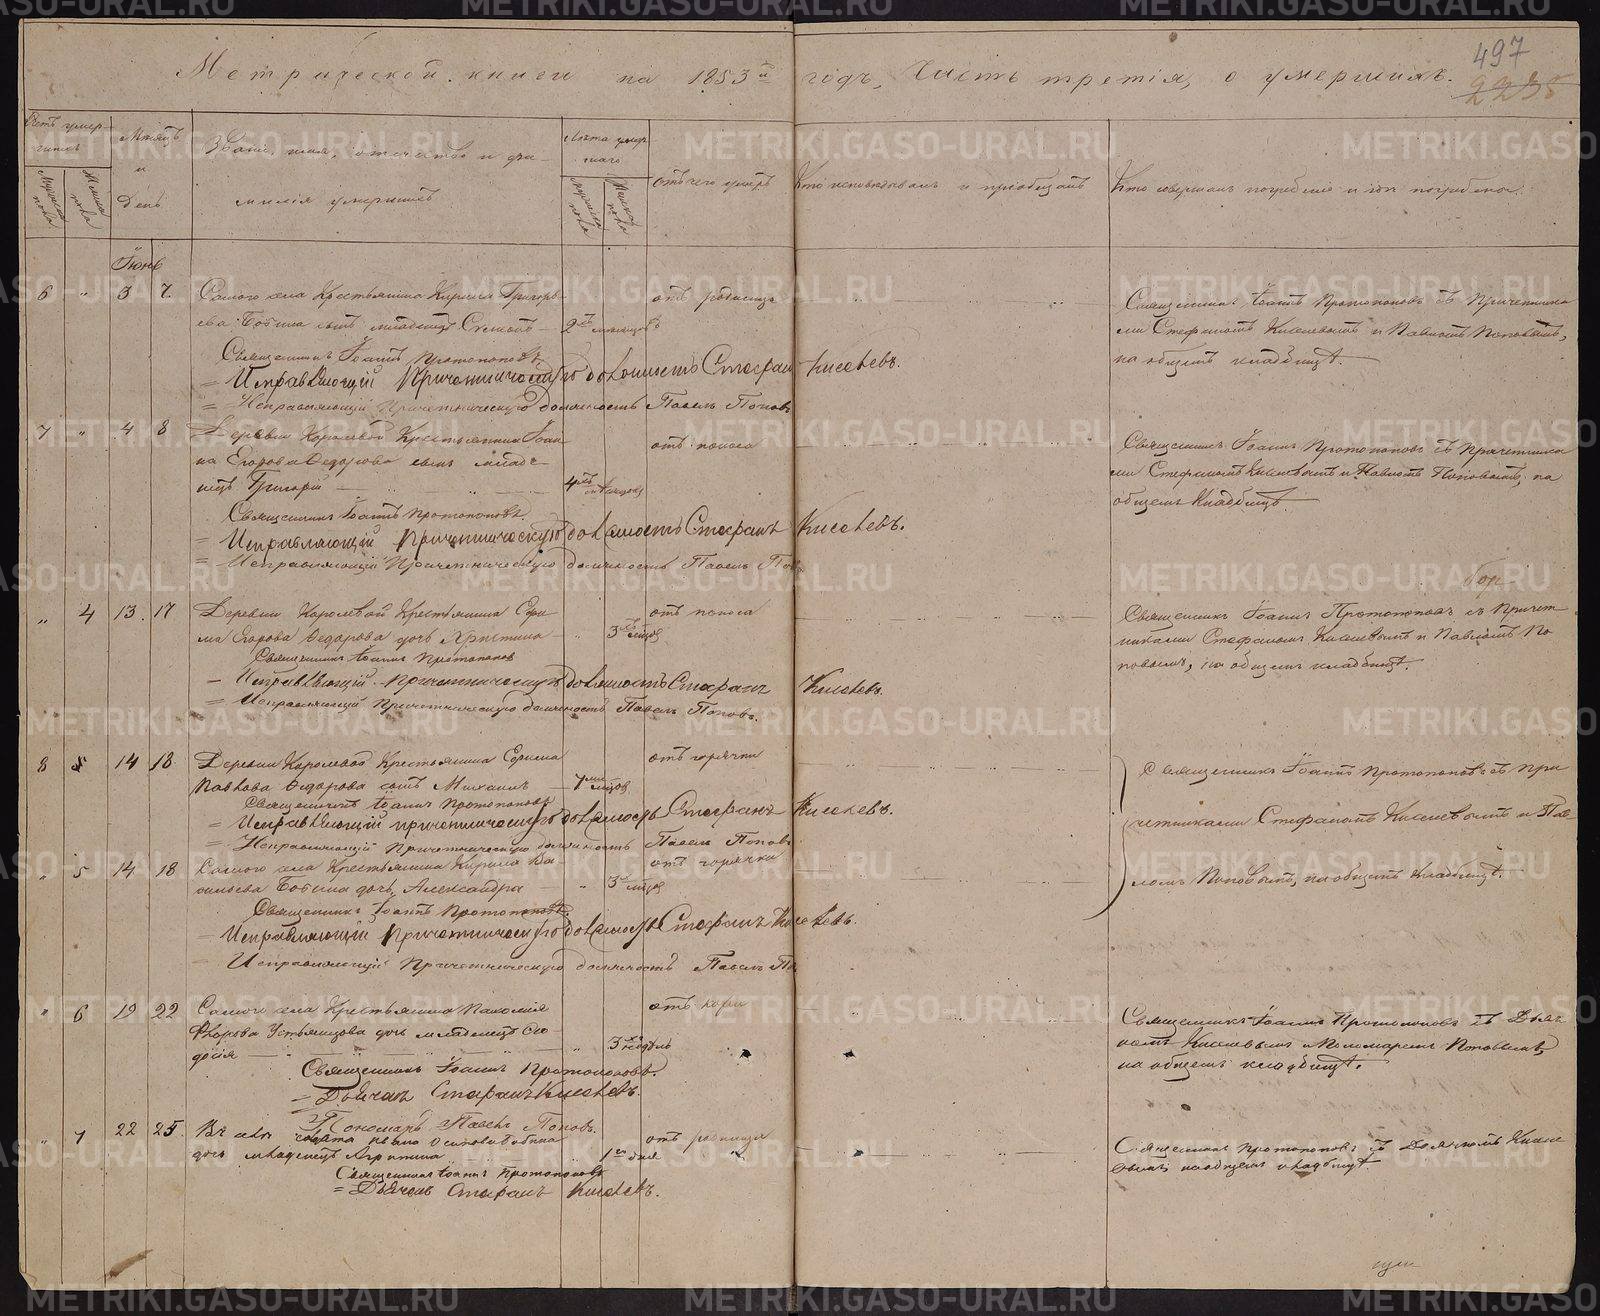 497
2235
Метрической книги на 1853й годъ, Часть третія, о умершихъ.
Счетъ умершихъ
Мужеска пола
Женска пола
Мѣсяцъ и День
Званіе, имя, отчество и фамилія умершихъ
Лѣта умершаго
Мужеска пола
Женска пола
Отъ чего умеръ
Кто исповѣдывалъ и пріобщалъ
Кто совершалъ погребеніе и гдѣ погребены.
Іюнь
6 " 3 7. Самого села Крестьянина Кирила Григорь- отъ родимца Священникъ Іоаннъ Протопоповъ съ Причетника
ева Бабина сынъ младенецъ 2хъ мѣсяцовъ ми Стефаномъ Киселевымъ и Павломъ Поповымъ,
Священникъ Іоаннъ Протопоповъ на общемъ кладбищѣ.
= Исправляющій Причетническую должность Стефанъ Киселевъ.
= Исправляющій Причетническую должность Павелъ Поповъ
7 " 4 8 Деревни Королевой Крестьянина Іоан- отъ поноса Священникъ Іоаннъ Протопоповъ съ Причетника
на Егорова Федорова сынъ младе- ми Стефаномъ Киселевымъ и Павломъ Поповымъ, на
нецъ Григорій 4хъ мѣсяцовъ общемъ Кладбищѣ.
Священникъ Іоаннъ Протопоповъ.
= Исправляющій Причетническую должность Стефанъ Киселевъ.
= Исправляющій Причетническую должность Павелъ Поп
" 4 13. 17 Деревни Королевой Крестьянина отъ поноса Священникъ Іоаннъ Протопоповъ съ Причет-
Егорова Федорова дочь Христина 3хъ никами Стефаномъ Киселевымъ и Павломъ По
Священникъ Іоаннъ Протопоповъ повымъ, на общемъ кладбищѣ.
– Исправляющій Причетническую должность Стефанъ Киселевъ.
= Исправляющій Причетническую должность Павелъ Поповъ.
8 14 18 Деревни Королевой Крестьянина отъ горячки Священникъ Іоаннъ Протопоповъ съ При
Павлова Федорова сынъ Михаилъ 7ми
Священникъ Іоаннъ Протопоповъ
= Исправляющій причетническую должность Стефанъ Киселевъ. четниками Стефаномъ Киселевымъ и Пав-
= Исправляющій Причетническую должность Павелъ Поповъ
" 5 14 18 Самого села Крестьянина Кирила Ва- отъ горячки
сильева Бабина дочь Александра 3хъ ломъ Поповымъ, на общемъ Кладбищѣ.
Священникъ Іоаннъ Протопоповъ.
– Исправляющій Причетническую должность Стефанъ Киселевъ.
– Исправляющій Причетническую должность Павелъ По
" 6 19 22 Самого села Крестьянина Пахомія отъ кори Священникъ Іоаннъ Протопоповъ съ Дьяч
Устьянцова дочь младенецъ Фео- комъ Киселевымъ и Пономаремъ Поповымъ,
досія 3 недѣль на общемъ кладбищѣ.
Священникъ Іоаннъ Протопоповъ.
= Дьячекъ Стефанъ Киселевъ.
= Пономарь Павелъ Поповъ.
" 7 22 25 солдата Ивана Осипова Бабина отъ родимца Священникъ Протопоповъ съ Дьячкомъ Кисе
дочь младенецъ 1 дня левымъ на общемъ кладбищѣ.
Священникъ Іоаннъ Протопоповъ
= Дьячекъ Стефанъ Киселевъ.
METRIKI.GASO-URAL.RU